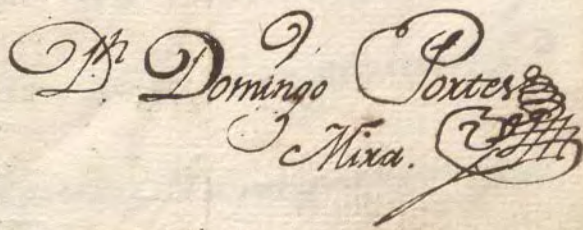 Dn Domingo Portes
Mira.